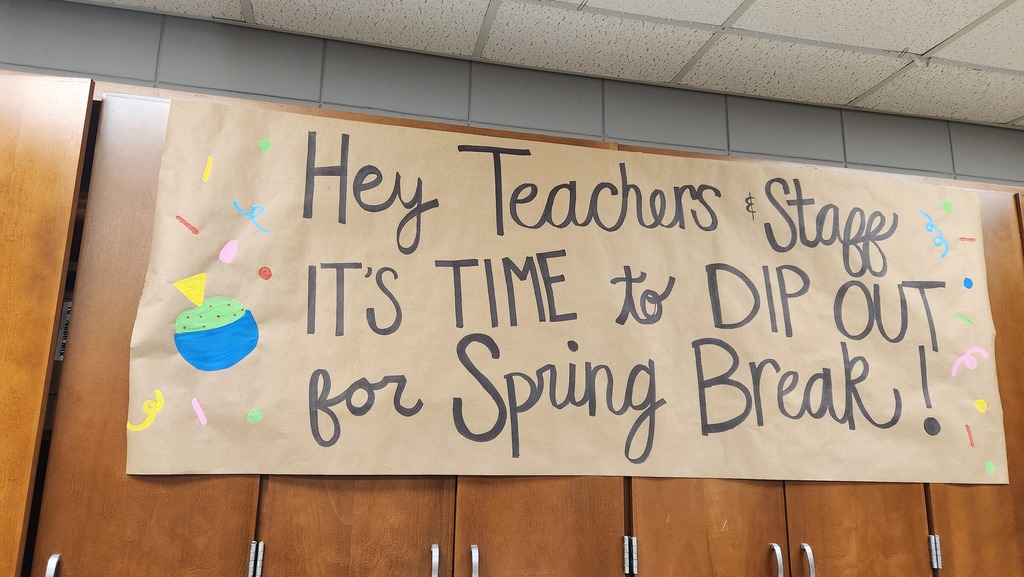 Hey Teachers & Staff
IT'S TIME to DIP OUT
for Spring Break!